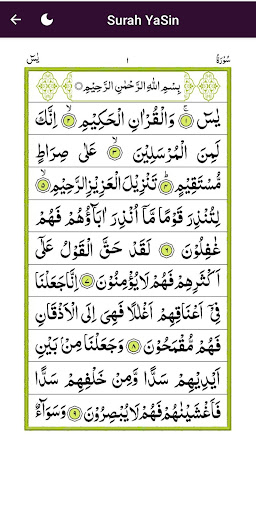 Surah YaSin
سُوْرَةُ ١ يٰسٓ
بِسْمِ اللّٰهِ الرَّحْمٰنِ الرَّحِيْمِ
يٰسٓ ۚ ﴿١﴾ وَالْقُرْاٰنِ الْحَكِيْمِ ۙ ﴿٢﴾ اِنَّكَ
لَمِنَ الْمُرْسَلِيْنَ ۙ ﴿٣﴾ عَلٰى صِرَاطٍ
مُّسْتَقِيْمٍ ؕ ﴿٤﴾ تَنْزِيْلَ الْعَزِيْزِ الرَّحِيْمِ ۙ ﴿٥﴾
لِتُنْذِرَ قَوْمًا مَّاۤ اُنْذِرَ اٰبَآؤُهُمْ فَهُمْ
غٰفِلُوْنَ ﴿٦﴾ لَقَدْ حَقَّ الْقَوْلُ عَلٰۤى
اَكْثَرِهِمْ فَهُمْ لَا يُؤْمِنُوْنَ ﴿٧﴾ اِنَّا جَعَلْنَا
فِيْۤ اَعْنَاقِهِمْ اَغْلٰلًا فَهِيَ اِلَى الْاَذْقَانِ
فَهُمْ مُّقْمَحُوْنَ ﴿٨﴾ وَجَعَلْنَا مِنْۢ بَيْنِ
اَيْدِيْهِمْ سَدًّا وَّمِنْ خَلْفِهِمْ سَدًّا
فَاَغْشَيْنٰهُمْ فَهُمْ لَا يُبْصِرُوْنَ ﴿٩﴾ وَسَوَآءٌ